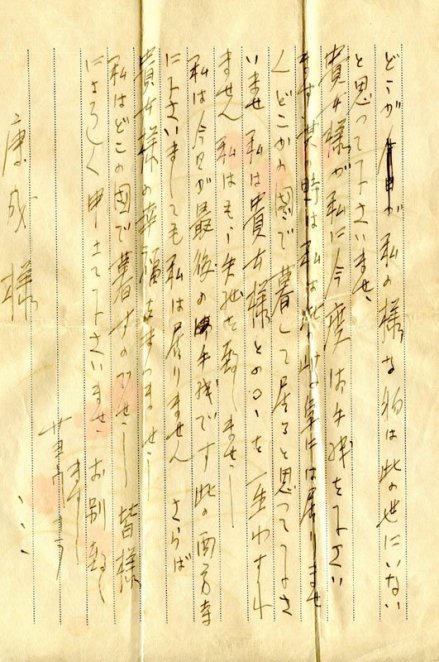 どこか 私の様な物は此の世にいない
と思って下さいませ、
貴女様が私に今度は手紙を下さい
ます其の時は私は此岐阜には居りませ
んどこかの国で暮して居ると思って下さ
いませ私は貴女様との○!を一生わすれ
ません私はもう失礼を致しませう
私は今日が最後の手紙です此の西方寺
に下さいましても私は居りません さらば
貴女様の幸福 ませう
私はどこの国で暮すのでせう 皆様
によろしく申上て下さいませ、お別致し
ませう
康成様